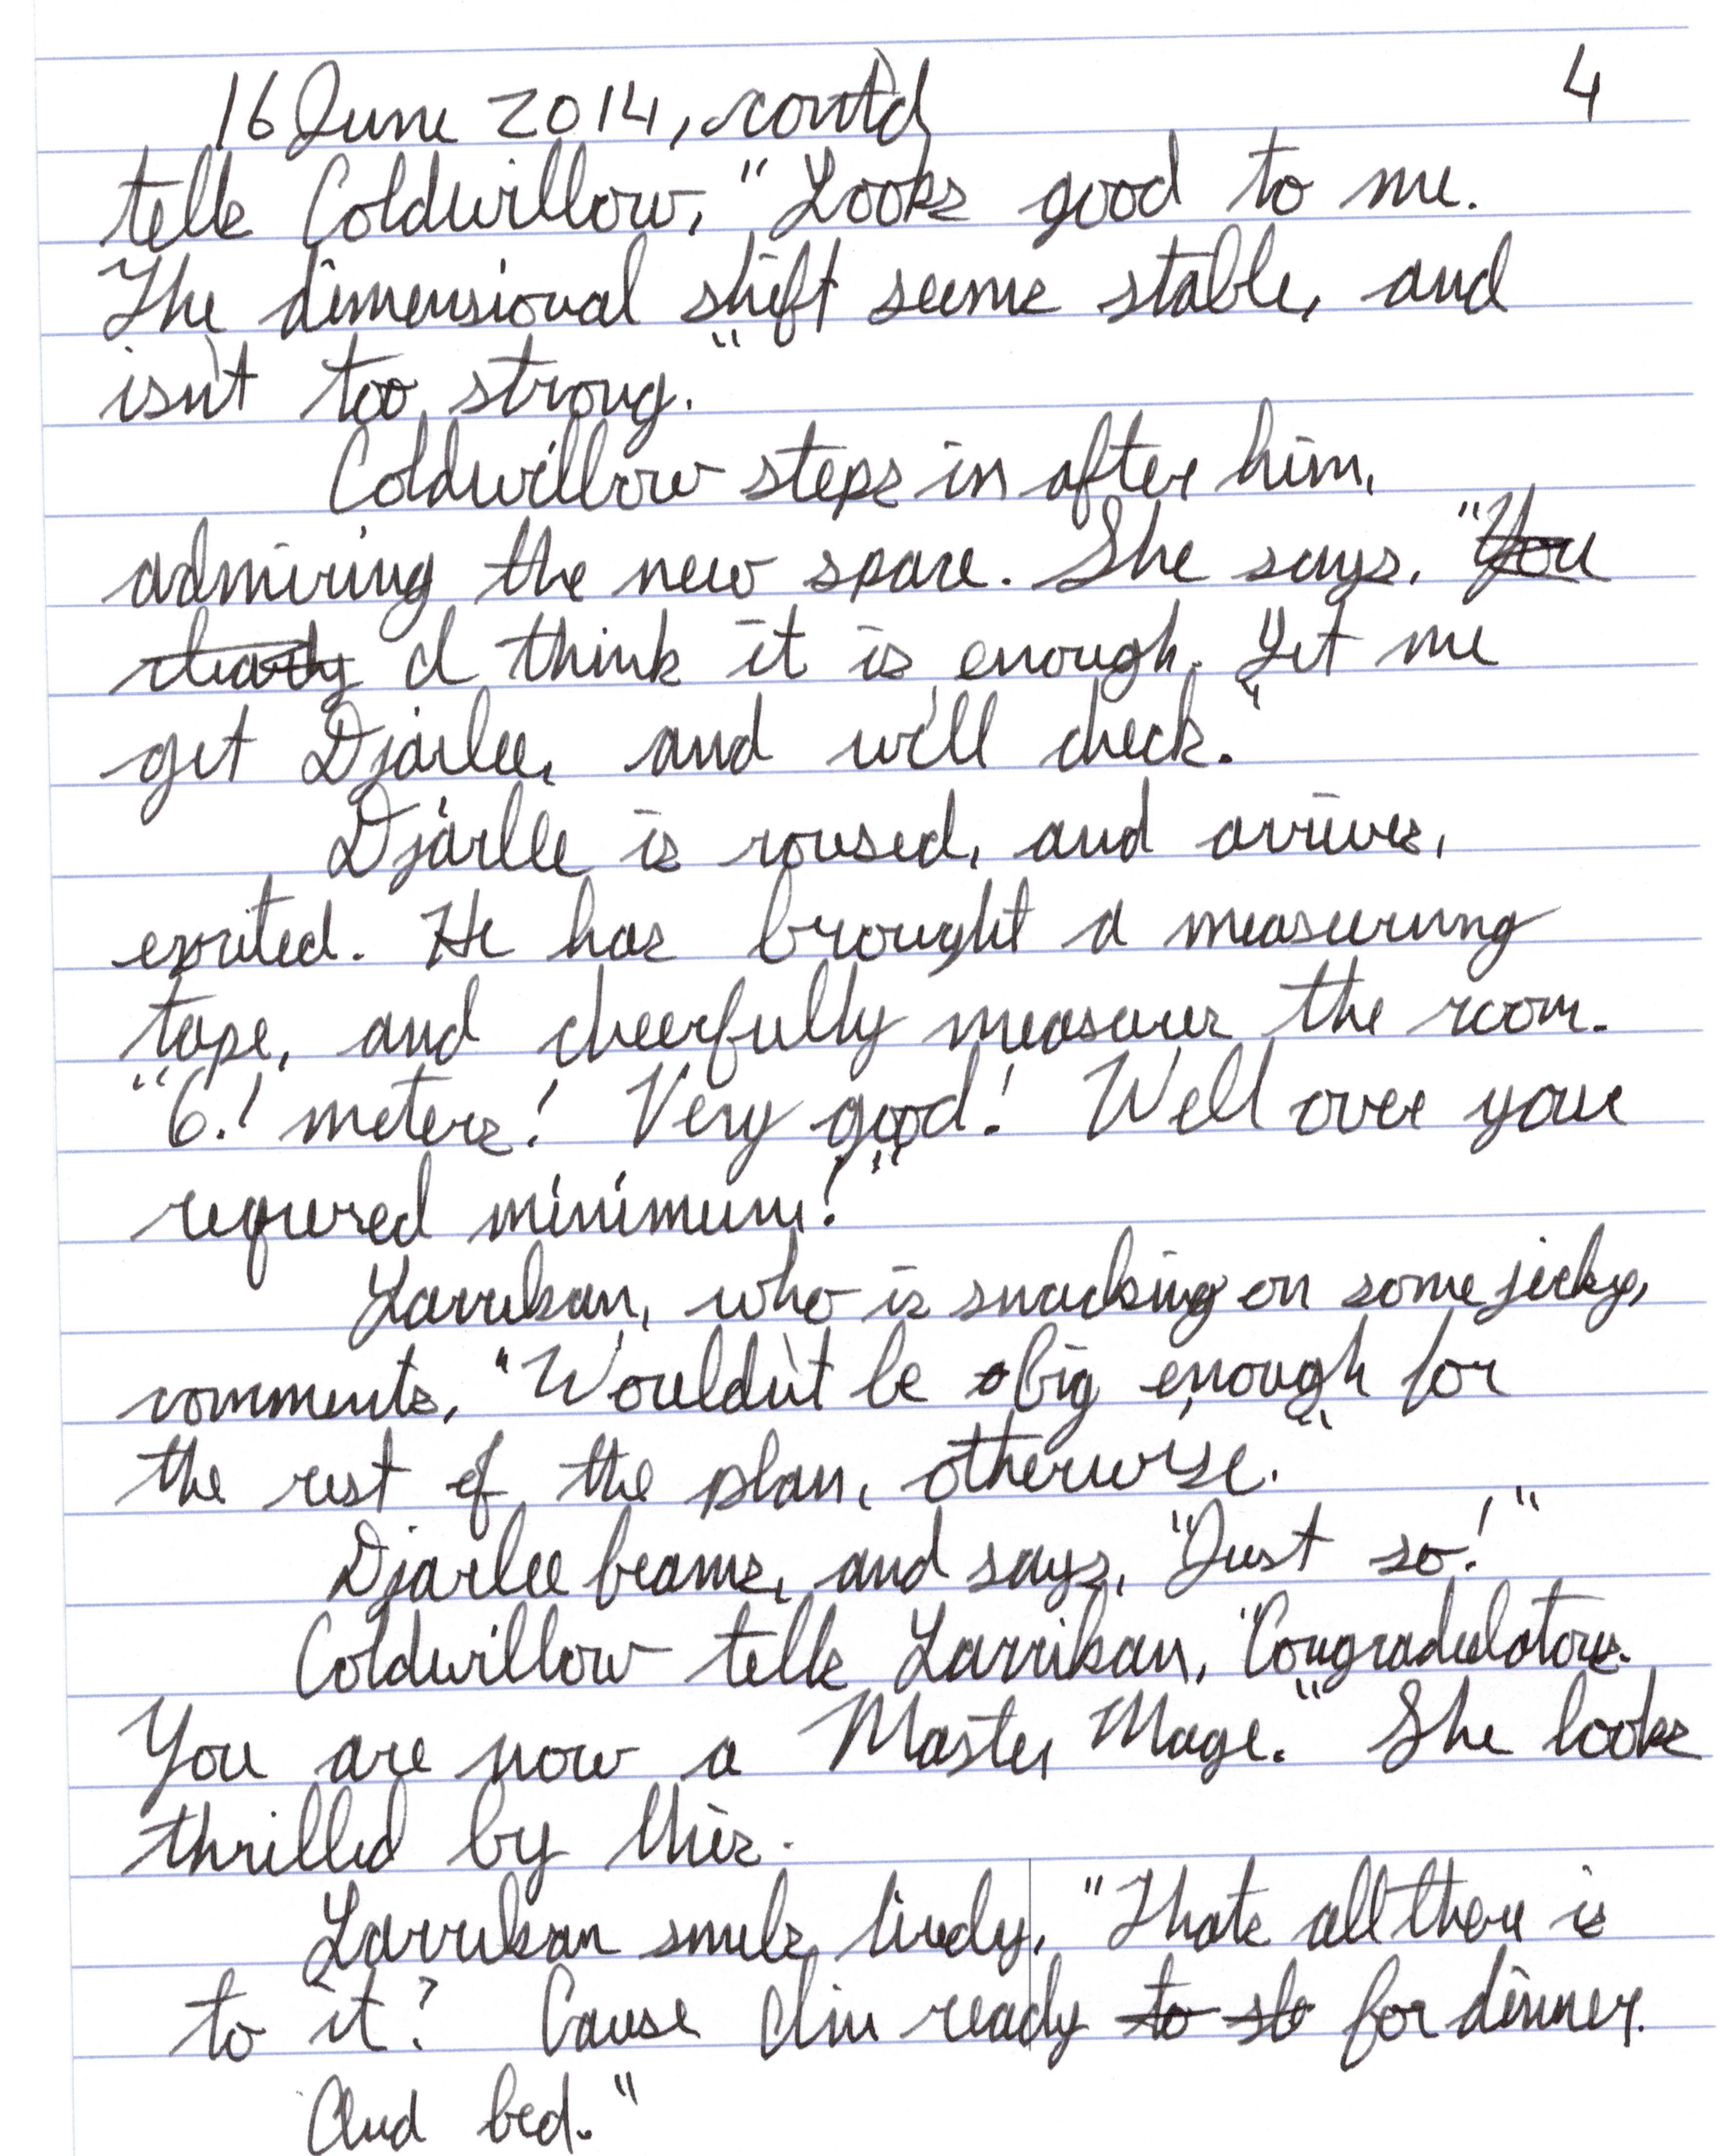 16 June 2014, cont'd 4
tells Coldwillow, "Looks good to me.
The dimensional shift seems stable, and
isn't too strong."
Coldwillow steps in after him,
admiring the new space. She says, "You
clearly I think it is enough. Let me
get Djarlee, and we'll check."
Djarlee is roused, and arrives,
excited. He has brought a measuring
tape, and cheerfully measures the room.
"6.1 meters! Very good! Well over your
required minimum!"
Larrikan, who is snacking on some jerky,
comments, "Wouldn't be big enough for
the rest of the plan, otherwise."
Djarlee beams, and says, "Just so!"
Coldwillow tells Larrikan, "Congradulations.
You are now a Master Mage." She looks
thrilled by this.
Larrikan smiles tiredly, "Thats all there is
to it? Cause I'm ready to sl for dinner.
And bed."